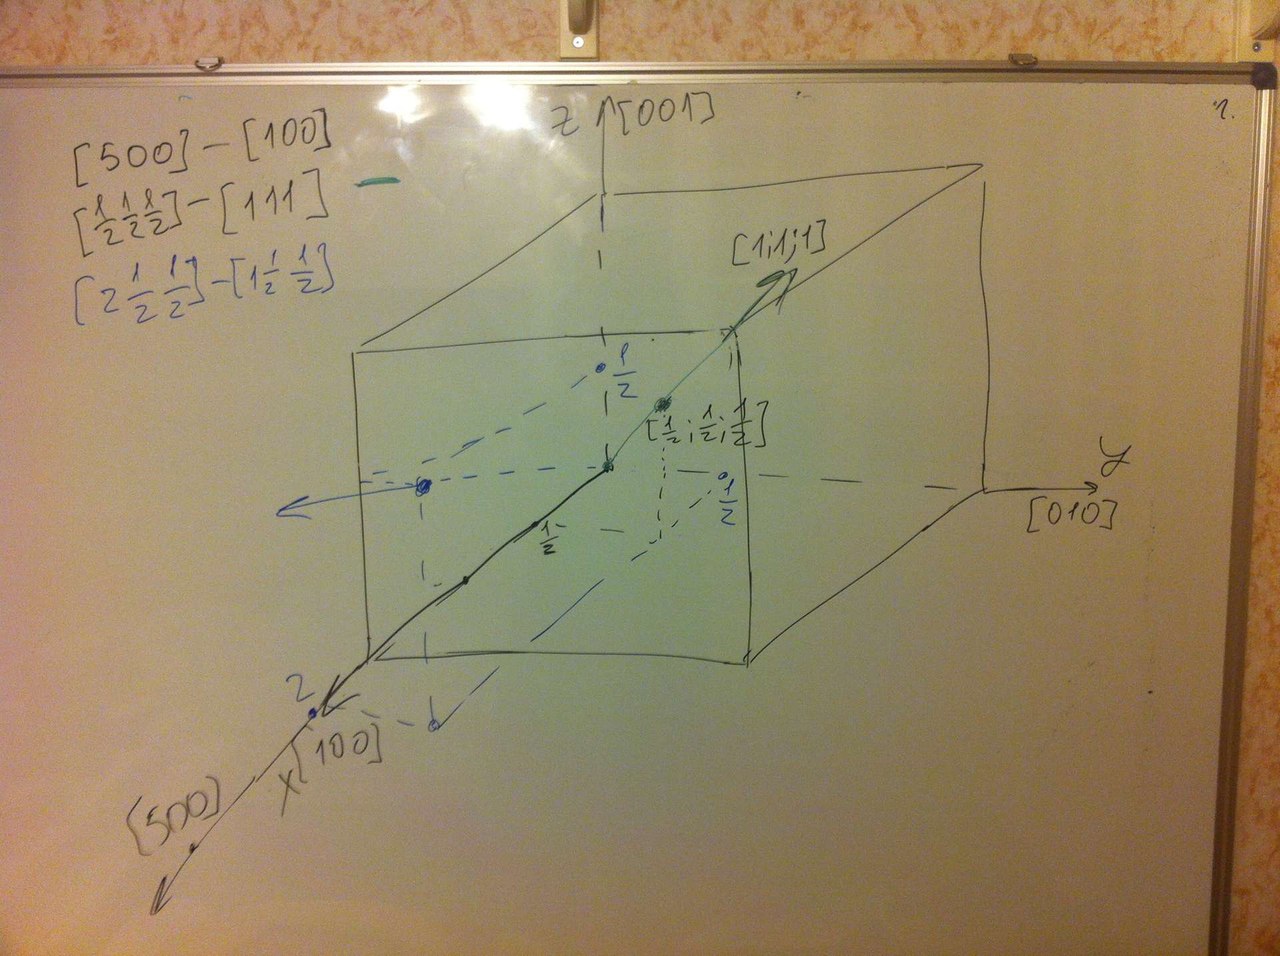 [500] - [100]
[1/2 1/2 1/2] - [111]
[2 1/2 1/2] - [1 1/2 1/2]
z [001]
[1;1;1]
1/2
[1/2; 1/2; 1/2]
1/2
y
[010]
1/2
2
x [100]
[500]